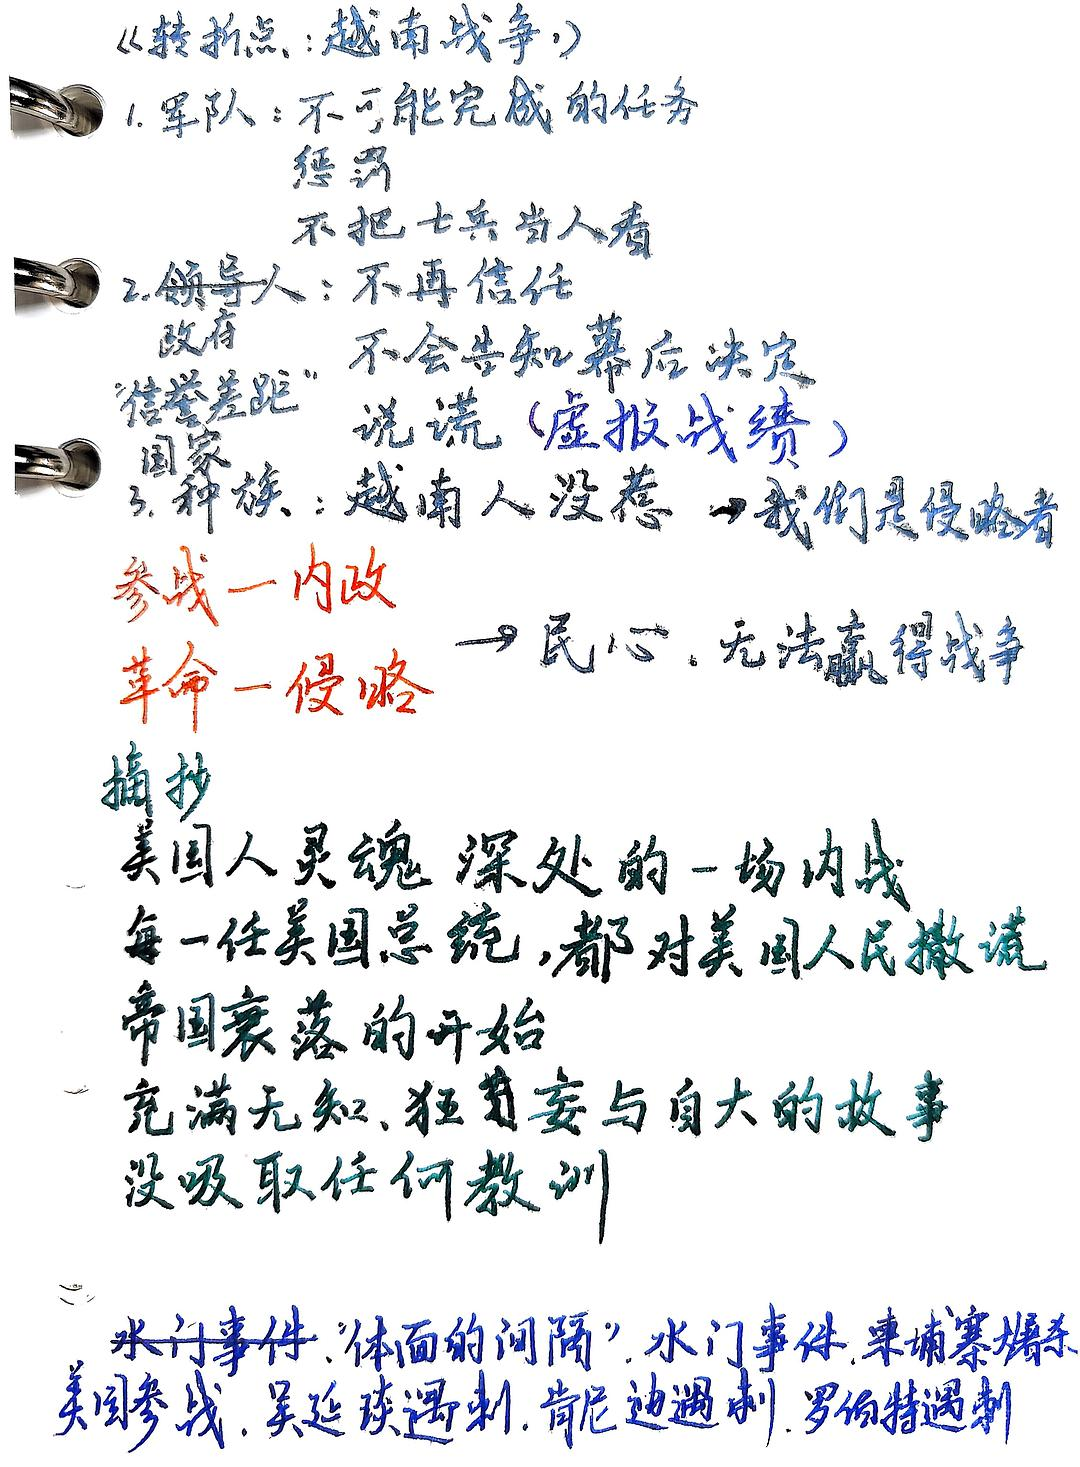 《转折点：越南战争》
1. 军队：不可能完成的任务
惩罚
不把士兵当人看
2. 领导人：不再信任
政府
不会告知幕后决定
“信誉差距”
说谎（虚报战绩）
国家
3. 种族：越南人没惹→我们是侵略者
参战—内政
革命—侵略
→民心、无法赢得战争
摘抄
美国人灵魂深处的一场内战
每一任美国总统，都对美国人民撒谎
帝国衰落的开始
充满无知、狂妄与自大的故事
没吸取任何教训
水门事件.“体面的间隔”.水门事件.柬埔寨
美国参战.吴延琰遇刺.肯尼迪遇刺.罗伯特遇刺